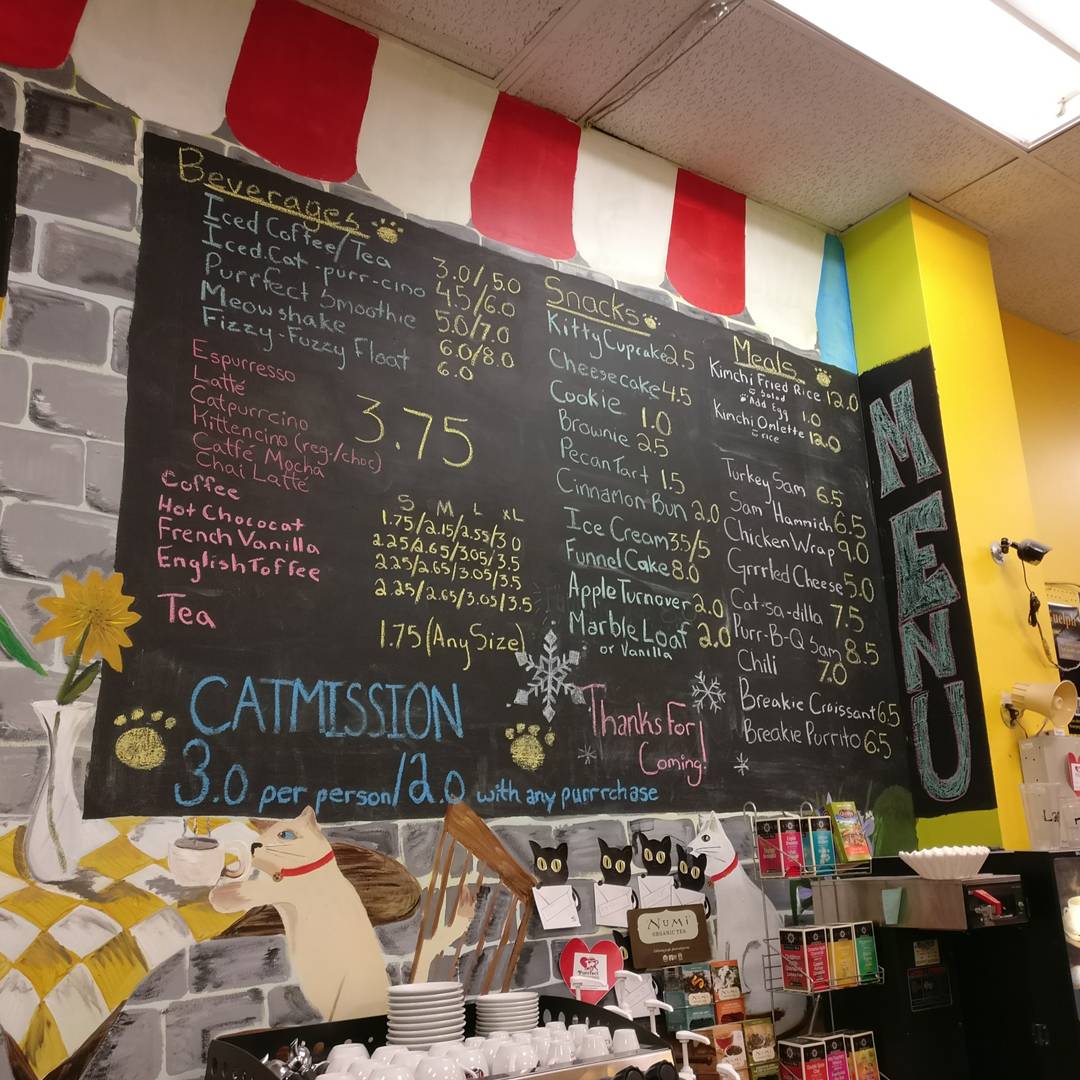 Beverages
Iced Coffee/Tea 3.0/5.0
Iced Cat-purr-cino 4.5/6.0
Purrfect Smoothie 5.0/7.0
Meowshake 6.0/8.0
Fizzy-Fuzzy Float 6.0
Espurresso
Latte
Catpurrcino
Kittencino (reg./choc)
Caffe Mocha
Chai Latte
3.75
S M L XL
Coffee 1.75/2.15/2.55/3.0
Hot Chococat 2.25/2.65/3.05/3.5
French Vanilla 2.25/2.65/3.05/3.5
English Toffee 2.25/2.65/3.05/3.5
Tea 1.75 (Any Size)
Snacks
Kitty Cupcake 2.5
Cheesecake 4.5
Cookie 1.0
Brownie 2.5
Pecan Tart 1.5
Cinnamon Bun 2.0
Ice Cream 3.5/5
Funnel Cake 8.0
Apple Turnover 2.0
Marble Loaf 2.0
or Vanilla
Meals
Kimchi Fried Rice 12.0
Salad
Add Egg 1.0
Kimchi Omlette 12.0
rice
Turkey Sam 6.5
Sam 'Hammich 6.5
Chicken Wrap 9.0
Grrrled Cheese 5.0
Cat-sa-dilla 7.5
Purr-B-Q Sam 8.5
Chili 7.0
Breakie Croissant 6.5
Breakie Purrito 6.5
MENU
CATMISSION
3.0 per person/2.0 with any purrrchase
Thanks For
Coming!
NUMI
ORGANIC TEA